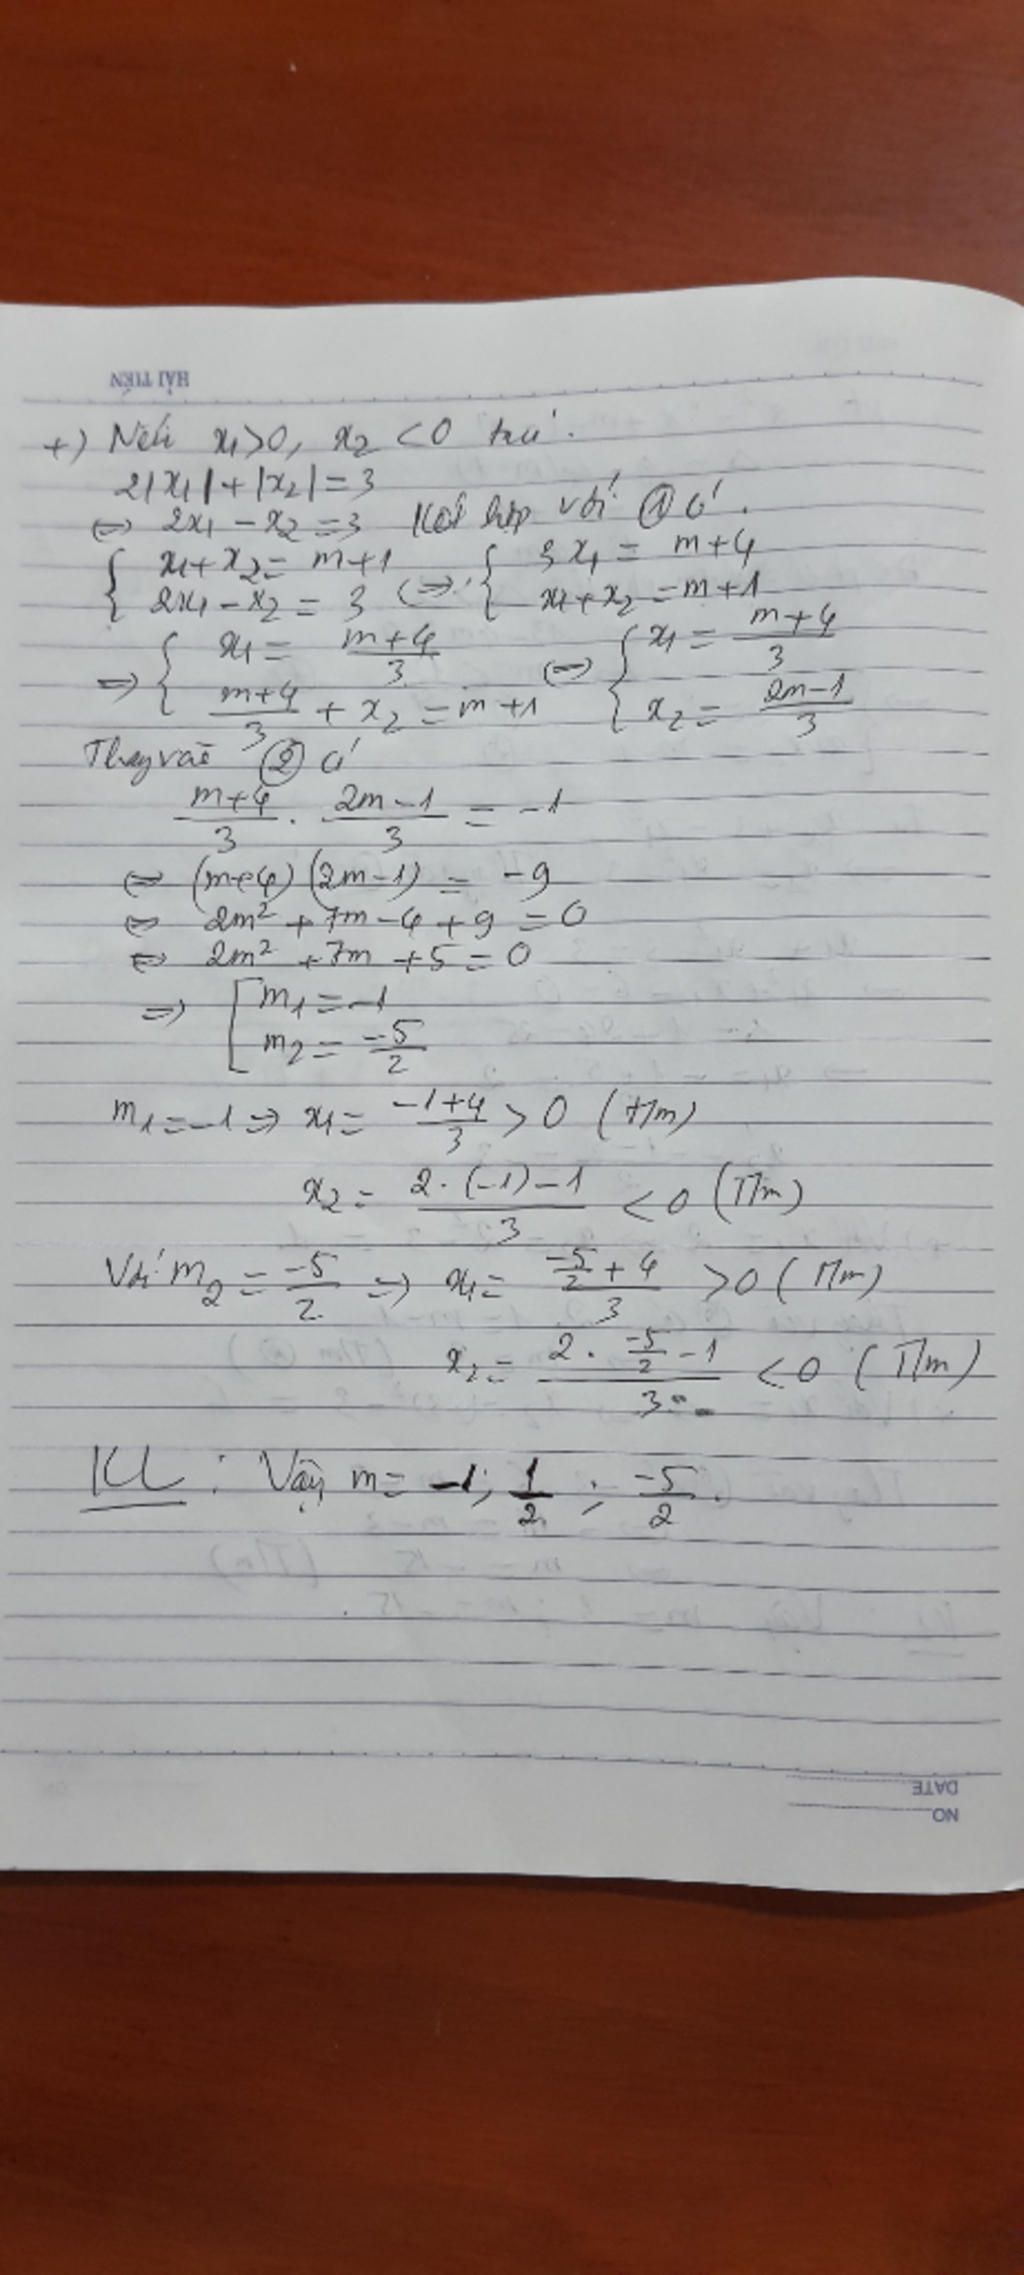 HẢI TIẾN
+) Nếu x₁>0, x₂ <0 thì.
2|x₁|+|x₂|=3
⇔ 2x₁ - x₂ =3 Kết hợp với ① có.
{ x₁+x₂ = m+1 ; 2x₁-x₂ = 3 ⇔ { 3x₁ = m+4 ; x₁+x₂ =m+1
⇒ { x₁ = (m+4)/3 ; (m+4)/3 + x₂ =m+1 ⇔ { x₁ = (m+4)/3 ; x₂ = (2m-1)/3
Thay vào ② có
(m+4)/3 . (2m-1)/3 = -1
⇔ (m+4)(2m-1) = -9
⇔ 2m² + 7m - 4 + 9 = 0
⇔ 2m² +7m +5 = 0
⇒ [ m₁ = -1 ; m₂ = -5/2
m₁=-1 ⇒ x₁= (-1+4)/3 > 0 (TM)
x₂ = (2.(-1)-1)/3 < 0 (TM)
Với m₂ = -5/2 ⇒ x₁= (-5/2 + 4)/3 >0 (TM)
x₂ = (2. -5/2 -1)/3 <0 (TM)
KL : Vậy m= -1; 1/2 ; -5/2.
DATE
NO